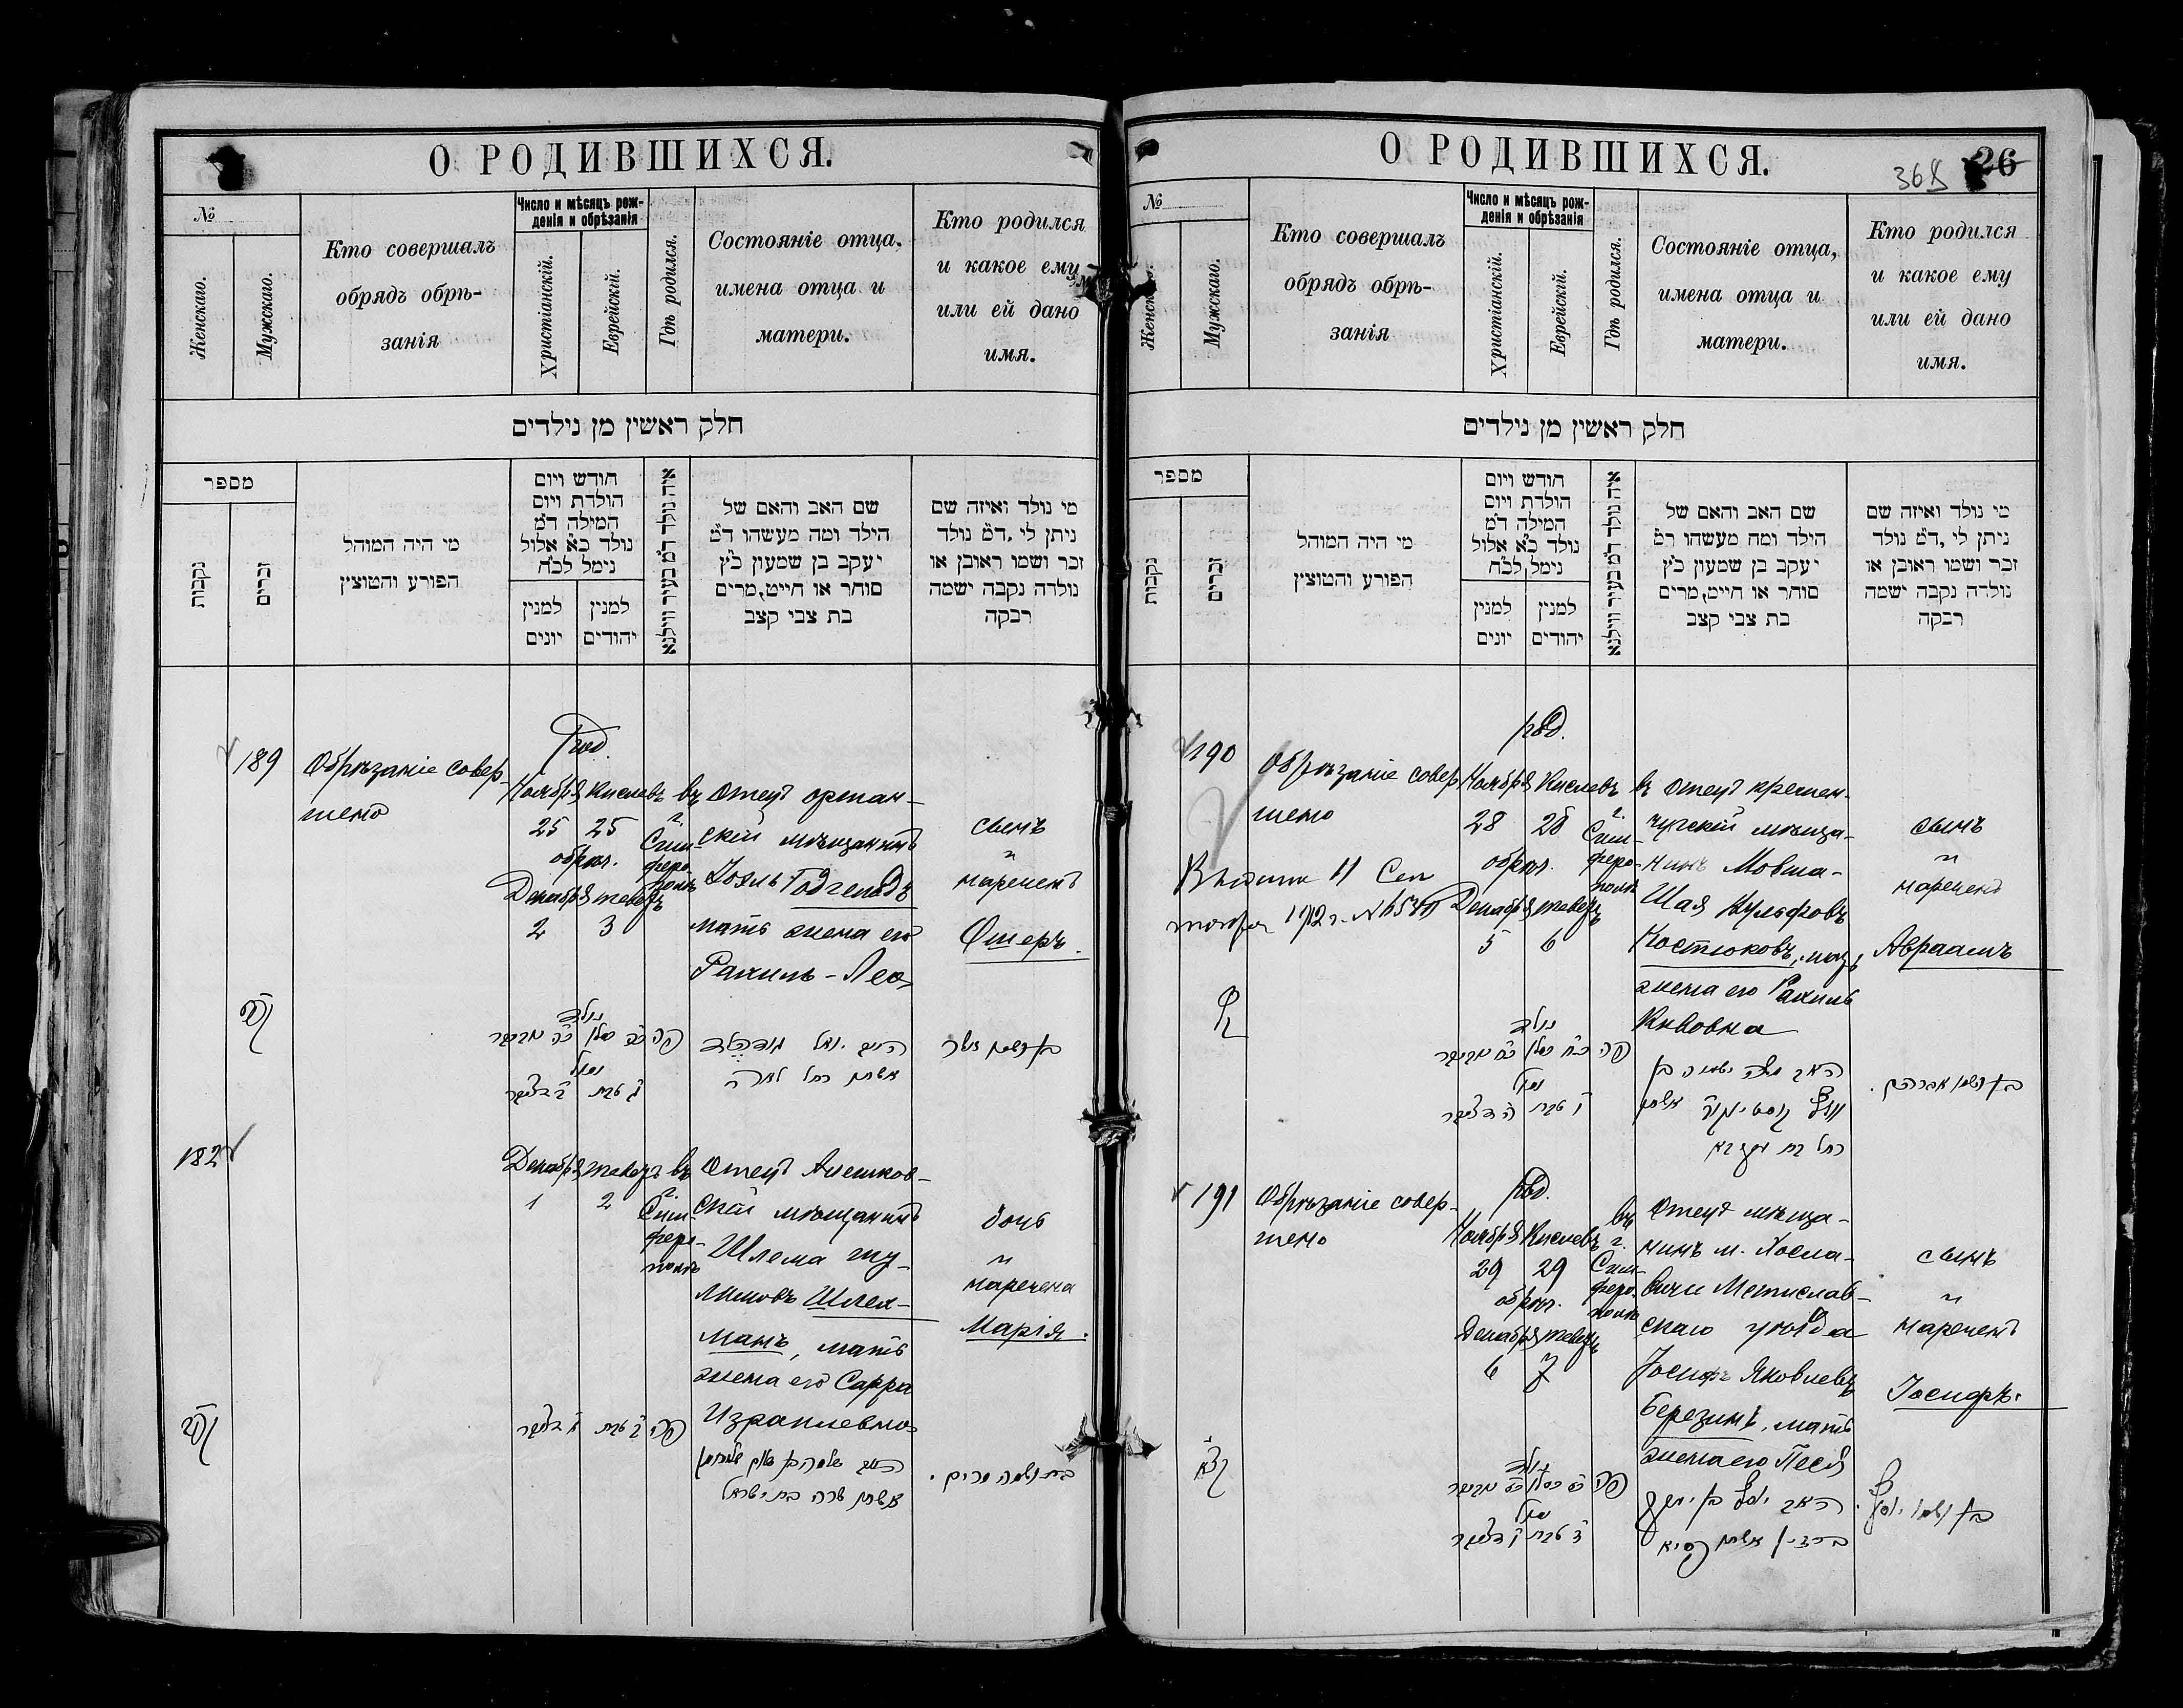 О РОДИВШИХСЯ.
№
Женскаго.
Мужскаго.
Кто совершалъ
обрядъ обрѣ-
занія
Число и мѣсяцъ рож-
денія и обрѣзанія
Христіанскій.
Еврейскій.
Гдѣ родился.
Состояніе отца,
имена отца и
матери.
Кто родился
и какое ему
или ей дано
имя.
חלק ראשין מן נילדים
מספר
נקבות
זכרים
מי היה המוהל
הפורע והמוצץ
חודש ויום
הולדת ויום
המילה ד״מ
נולד כ״א אלול
נימל לכ״ח
למנין
יונים
למנין
יהודים
איה נולד ד״מ בעיר ווילנא
שם האב והאם של
הילד ומה מעשהו ד״מ
יעקב בן שמעון כ״ץ
סוחר או חייט, מרים
בת צבי קצב
מי נולד ואיזה שם
ניתן לי, ד״מ נולד
זכר ושמו ראובן או
נולדה נקבה ישמה
רבקה
189
Обрѣзаніе совер-
шено
род.
Ноября Кислевъ
25 25
обрѣз.
Декабря тебетъ
2 3
въ
г.
Сим-
феро-
полѣ
Отецъ
скій мѣщанинъ
мать жена его
Рахиль-Лея
сынъ
и
нареченъ
Ошеръ.
נולד
פה כ״ה כסלו
נמול
ג טבת
אשתו רחל לאה
182
Декабря тебетъ
1 2
въ
г.
Сим-
феро-
полѣ
Отецъ Алешков-
скій мѣщанинъ
Шлема
Шлей-
манъ, мать
жена его Сарра
Израилевна
дочь
и
наречена
Марія.
פה ב טבת
אשתו שרה בת ישראל
בת ושמה מרים.
О РОДИВШИХСЯ.
368
26
№
Женскаго.
Мужскаго.
Кто совершалъ
обрядъ обрѣ-
занія
Число и мѣсяцъ рож-
денія и обрѣзанія
Христіанскій.
Еврейскій.
Гдѣ родился.
Состояніе отца,
имена отца и
матери.
Кто родился
и какое ему
или ей дано
имя.
חלק ראשין מן נילדים
מספר
נקבות
זכרים
מי היה המוהל
הפורע והמוצץ
חודש ויום
הולדת ויום
המילה ד״מ
נולד כ״א אלול
נימל לכ״ח
למנין
יונים
למנין
יהודים
איה נולד ד״מ בעיר ווילנא
שם האב והאם של
הילד ומה מעשהו ד״מ
יעקב בן שמעון כ״ץ
סוחר או חייט, מרים
בת צבי קצב
מי נולד ואיזה שם
ניתן לי, ד״מ נולד
זכר ושמו ראובן או
נולדה נקבה ישמה
רבקה
190
Обрѣзаніе совер
шено
род.
Ноября Кислевъ
28 28
обрѣз.
Декабря тебетъ
5 6
въ
г.
Сим-
феро-
полѣ
Отецъ Кремен-
чугскій мѣща-
нинъ Мовша-
Шая Вульфовъ
Костюковъ, мать
жена его Рахиль
сынъ
и
нареченъ
Авраамъ
נולד
פה כ״ח כסלו
נמול
ו טבת
האב משה ישעיה בן
בן ושמו אברהם.
191
Обрѣзаніе совер-
шено
род.
Ноября Кислевъ
29 29
обрѣз.
Декабря тебетъ
6 7
въ
г.
Сим-
феро-
полѣ
Отецъ мѣща-
нинъ м. Хосла-
вичи Мстислав-
скаго уѣзда
Іосифъ Яковлевъ
Березинъ, мать
жена его Песя
сынъ
и
нареченъ
Іосифъ.
נולד
פה כ״ט כסלו
נמול
ז טבת
האב יוסף בן
ברזין אשתו פסיא
בן ושמו יוסף.